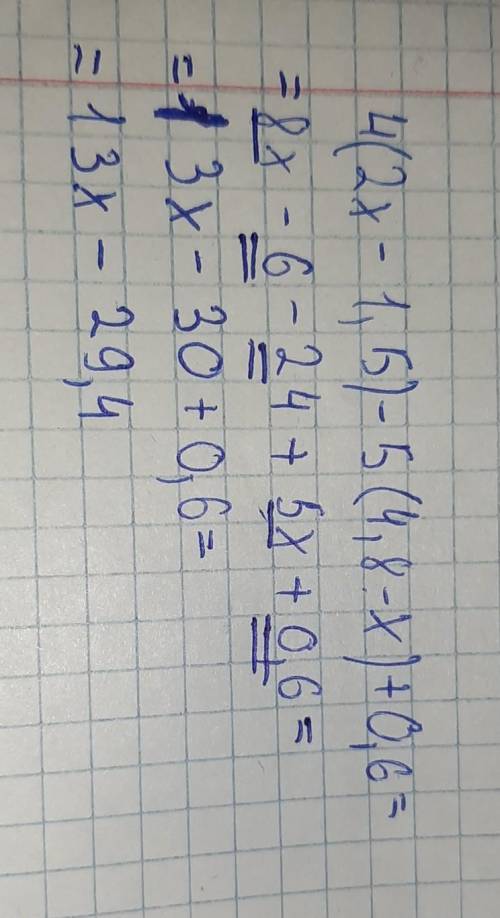 4(2x - 1,5) - 5(4,8 - x) + 0,6 =
= 8x - 6 - 24 + 5x + 0,6 =
= 13x - 30 + 0,6 =
= 13x - 29,4